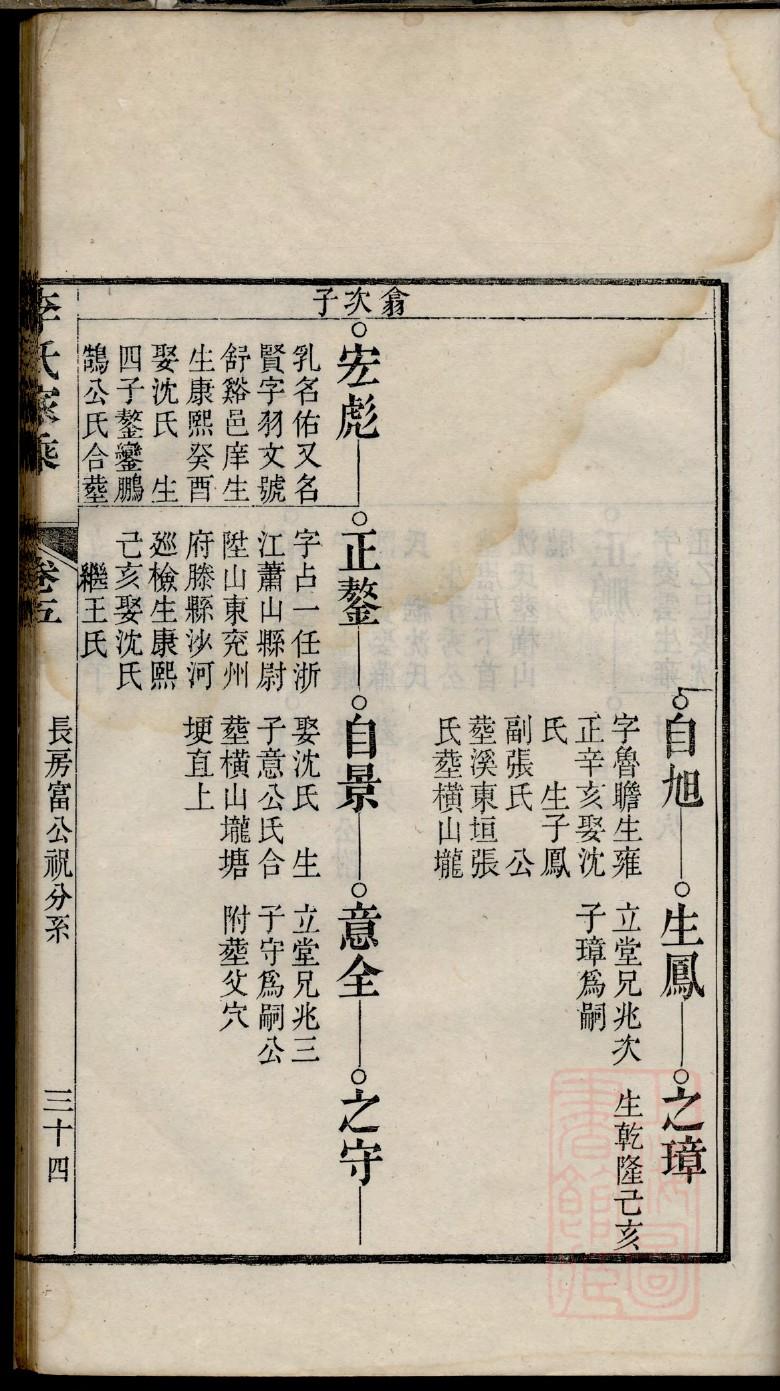 翕次子
自旭
字魯瞻生雍
正辛亥娶沈
氏　生子鳳
副張氏　公
塟溪東垣張
氏塟橫山壠
生鳳
立堂兄兆次
子璋爲嗣
之璋
生乾隆己亥
宏彪
乳名佑又名
賢字羽文號
舒谿邑庠生
生康熙癸酉
娶沈氏　生
四子鏊鑾鵬
鵠公氏合塟
正鏊
字占一任浙
江蕭山縣尉
陞山東兖州
府滕縣沙河
廵檢生康熙
己亥娶沈氏
繼王氏
自景
娶沈氏　生
子意公氏合
塟橫山壠塘
埂直上
意全
立堂兄兆三
子守爲嗣公
附塟父穴
之守
李氏家乘
卷五
長房富公祝分系
三十四